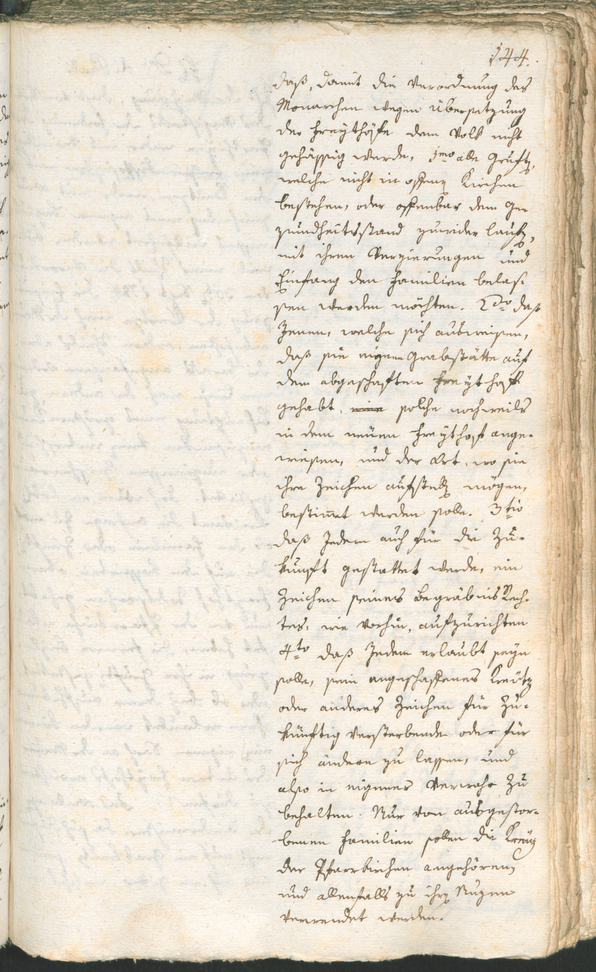 144.
daß, damit die Verordnung des
Monarchen wegen Übersetzung
der Freythöfe dem Volk nicht
gehässig werde, 1mo alle Gruften,
welche nicht in offenen Kirchen
bestehen, oder offenbar dem Ge-
sundheitsstand zuwider laufen,
mit ihren Verzierungen und
Einfang den Familien belas-
sen werden möchten. 2do daß
Jenen, welche sich ausweisen,
daß sie eigene Grabstätte auf
dem abgeschaften Freythof
gehabt, solche nochmals
in dem neuen Freythof ange-
wiesen, und der Ort, wo sie
ihre Zeichen aufstellen mögen,
bestimmt werden solle. 3tio
daß Jedem auch für die Zu-
kunft gestattet werde, ein
Zeichen seines Begräbnis Rech-
tes, wie vorhin, aufzurichten
4to daß Jedem erlaubt seyn
solle, sein angeschaffenes Kreutz
oder anderes Zeichen für Zu-
künftig Versterbende oder für
sich ändern zu lassen, und
also in eigener Verwahr zu
behalten. Nur von ausgestor-
benen Familien sollen die Kreuz
der Pfarrkirchen angehören,
und allenfalls zu ihren Nuzen
verwendet werden.